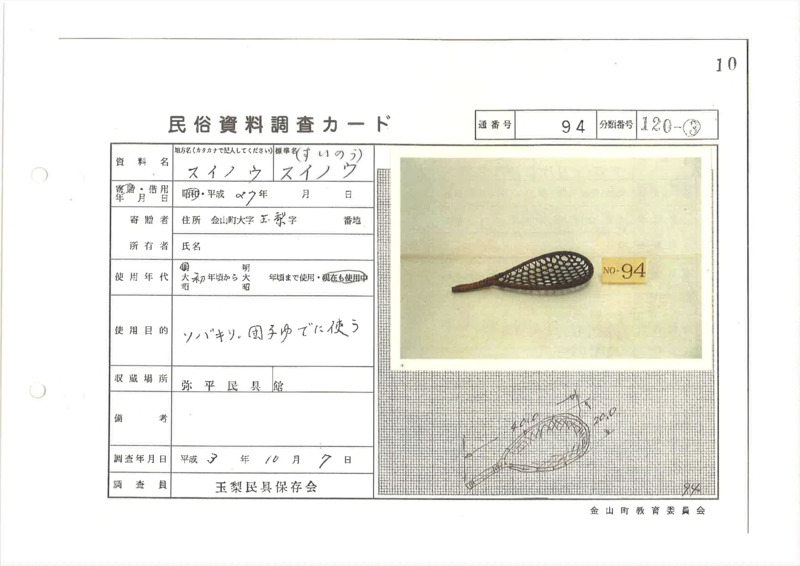 10
民俗資料調査カード
通番号 94 分類番号 120-③
資料名 地方名(カタカナで記入してください) スイノウ 標準名(すいのう) スイノウ
寄贈・借用年月日 昭和・平成 27年 月 日
寄贈者 住所 金山町大字 玉梨 字 番地
所有者 氏名
使用年代 明大昭 初 年頃から 明大昭 年頃まで使用・現在も使用中
使用目的 ソバキリ。団子ゆでに使う
収蔵場所 弥平民具館
備考
調査年月日 平成 3 年 10 月 7 日
調査員 玉梨民具保存会
NO-94
40.0
20.0
94
金山町教育委員会